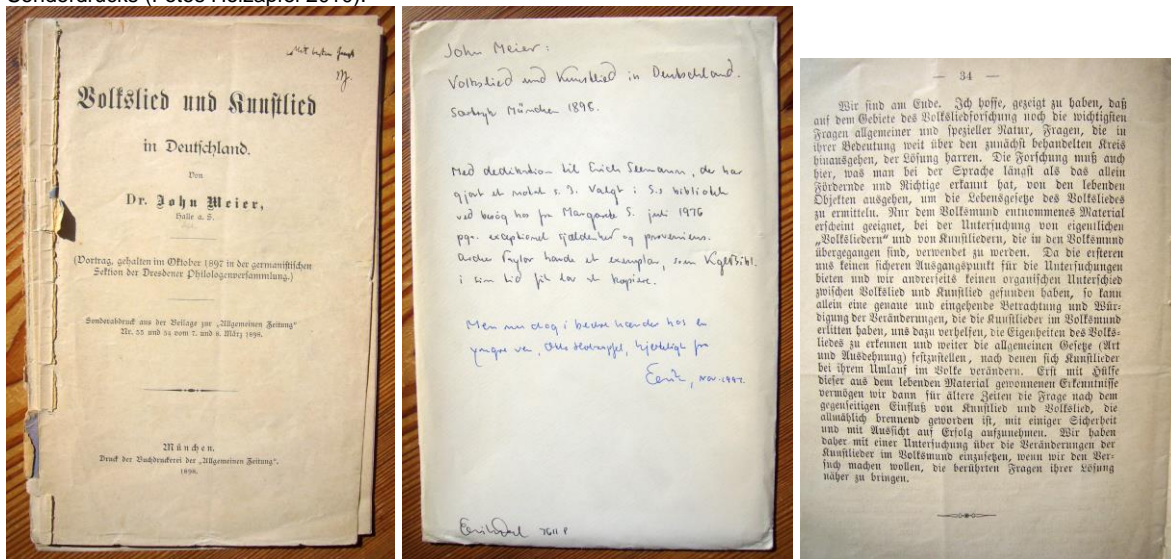 Sonderdrucks (Fotos Holzapfel 2010).
Volkslied und Kunstlied
in Deutschland.
Von
Dr. John Meier,
Halle a. S.
(Vortrag, gehalten im Oktober 1897 in der germanistischen
Sektion der Dresdener Philologenversammlung.)
Sonderabdruck aus der Beilage zur „Allgemeinen Zeitung“
Nr. 53 und 54 vom 7. und 8. März 1898.
München.
Druck der Buchdruckerei der „Allgemeinen Zeitung“.
1898.
John Meier:
Volkslied und Kunstlied in Deutschland.
Særtryk München 1898.
Med dedikation til Erich Seemann, der har
gjort et
notat s. 3. Valgt i S.s bibliotek
ved besøg hos fru Margarete S. juli 1976
pgr. exceptionel sjældenhed og proveniens.
Archer Taylor havde et exemplar, som Kgl. Bibl.
i sin tid fik lov at kopiere.
Men nu dog i bedre hænder hos en
yngre ven, Otto Holzapfel, hjerteligt fra
Erik, Nov. 1997.
Erik Dal 7611 P
— 34 —
Wir sind am Ende. Ich hoffe, gezeigt zu haben, daß
auf dem Gebiete des Volksliedforschung noch die wichtigsten
Fragen allgemeiner und spezieller Natur, Fragen, die in
ihrer Bedeutung weit über den zunächst behandelten Kreis
hinausgehen, der Lösung harren. Die Forschung muß auch
hier, was man bei der Sprache längst als das allein
Fördernde und Richtige erkannt hat, von den lebenden
Objekten ausgehen, um die Lebensgesetze des Volksliedes
zu ermitteln. Nur dem Volksmund entnommenes Material
erscheint geeignet, bei der Untersuchung von eigentlichen
„Volksliedern“ und von Kunstliedern, die in den Volksmund
übergegangen sind, verwendet zu werden. Da die ersteren
uns keinen sicheren Ausgangspunkt für die Untersuchungen
bieten und wir andrerseits keinen organischen Unterschied
zwischen Volkslied und Kunstlied gefunden haben, so kann
allein eine genaue und eingehende Betrachtung und Wür-
digung der Veränderungen, die die Kunstlieder im Volksmund
erlitten haben, uns dazu verhelfen, die Eigenheiten des Volks-
liedes zu erkennen und weiter die allgemeinen Gesetze (Art
und Ausdehnung) festzustellen, nach denen sich Kunstlieder
bei ihrem Umlauf im Volke verändern. Erst mit Hülfe
dieser aus dem lebenden Material gewonnenen Erkenntnisse
vermögen wir dann für ältere Zeiten die Frage nach dem
gegenseitigen Einfluß von Kunstlied und Volkslied, die
allmählich brennend geworden ist, mit einiger Sicherheit
und mit Aussicht auf Erfolg aufzunehmen. Wir haben
daher mit einer Untersuchung über die Veränderungen der
Kunstlieder im Volksmund einzusetzen, wenn wir den Ver-
such machen wollen, die berührten Fragen ihrer Lösung
näher zu bringen.